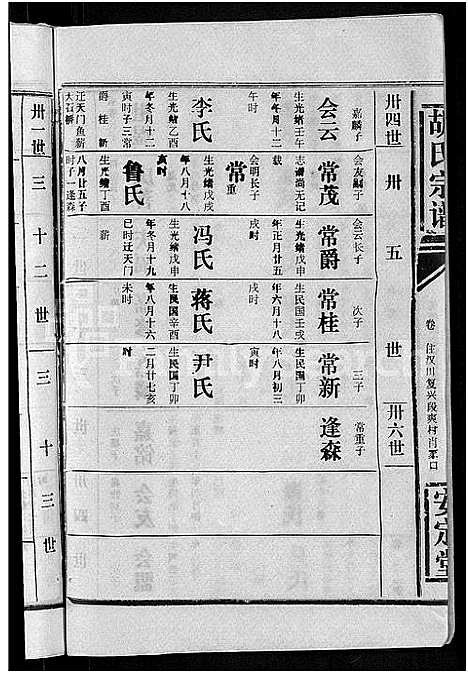 胡氏宗谱
卷
住汉川复兴段爽村肖家口
安定堂
卅四世
卅五世
卅六世
嘉麟子
会云
生光绪壬午
年冬月十二
午时
李氏
生光绪乙酉
年冬月十二
寅时子三常
爵桂新
迁天门鱼薪
会友嗣子
常茂
志谱尚无记
载
会明长子
常重
生光绪戊戌
年八月十八
鲁氏
生光绪丁酉
八月廿五子
时子一逢森
会云长子
常爵
生光绪戊申
年正月廿五
戌时
冯氏
生光绪戊申
年冬月十九
巳时迁天门
薪
次子
常桂
生民国壬戌
年六月十八
戌时
蒋氏
生民国辛酉
年八月十六
未时
三子
常新
生民国丁卯
年八月初三
寅时
尹氏
生民国丁卯
二月廿七亥
时
常重子
逢森
卅一世
三十二世
三十三世